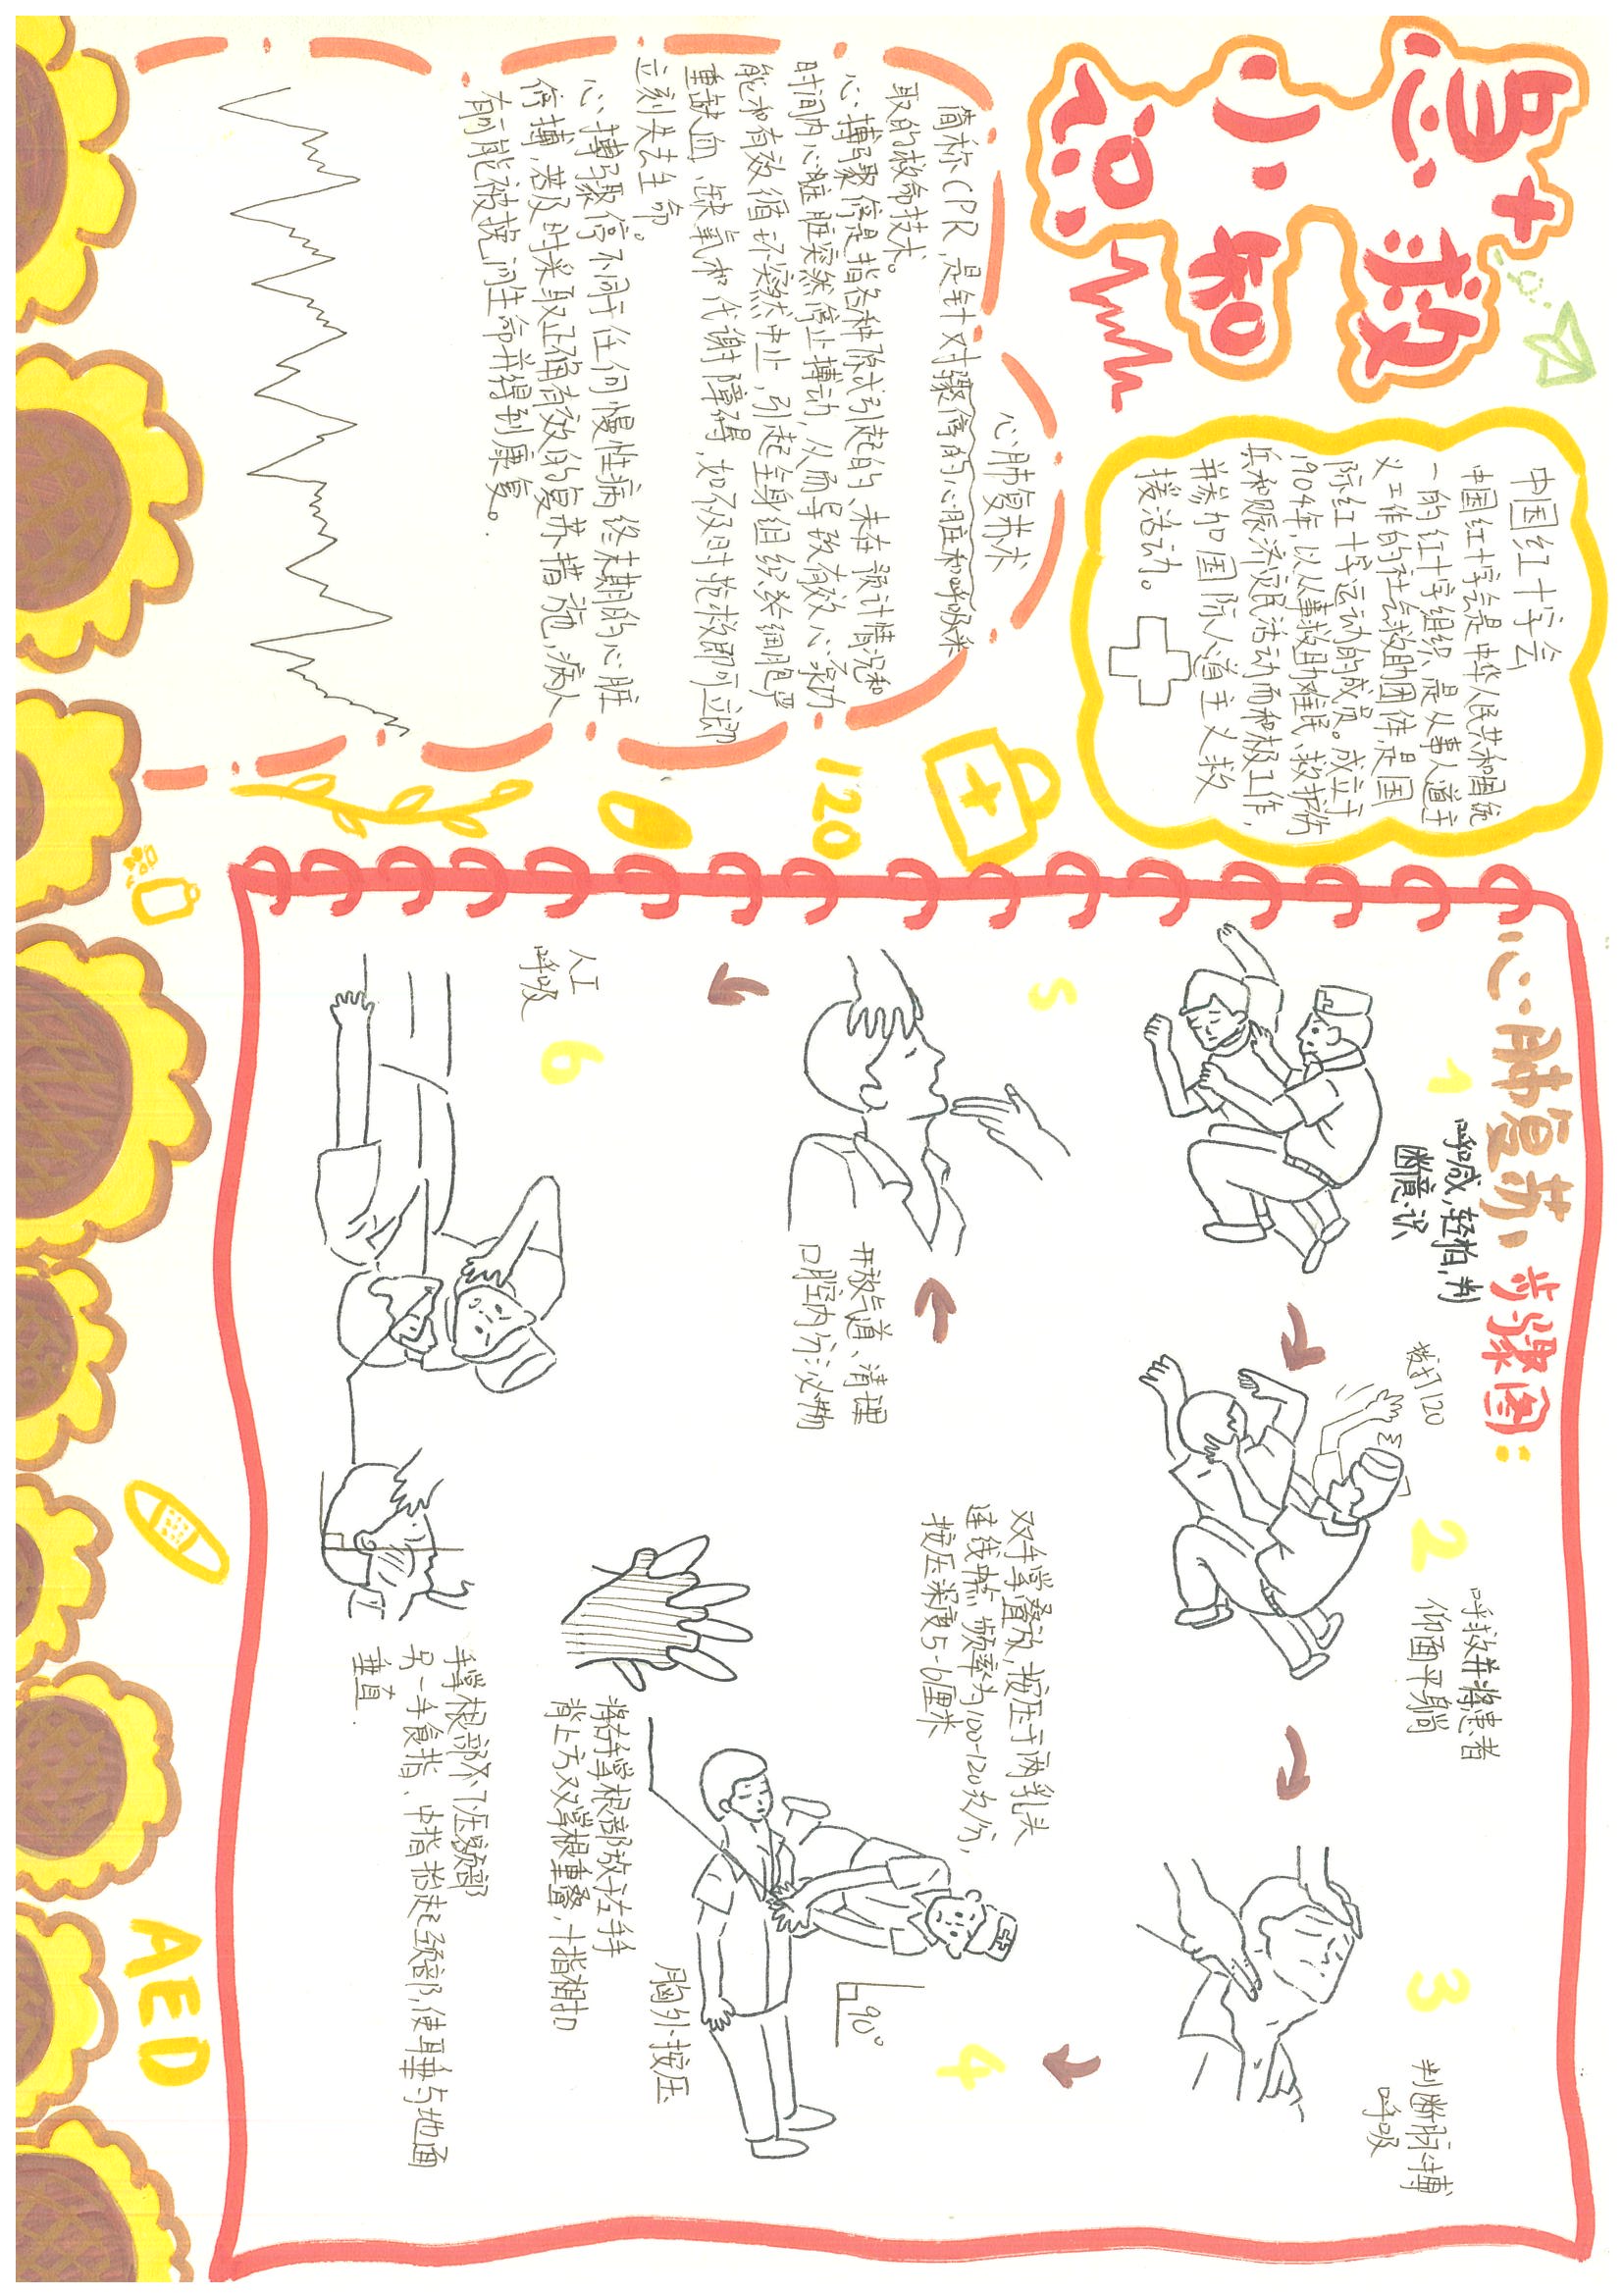 急救小知识
中国红十字会
中国红十字会是中华人民共和国统
一的红十字组织、是从事人道主
义工作的社会救助团体,是国
际红十字运动的成员。成立于
1904年,以从事救助难民、救护伤
兵和赈济灾民活动而积极工作,
并参加国际人道主义救
援活动。
心肺复苏术
简称CPR,是针对骤停的心脏和呼吸采
取的救命技术。
心搏骤停是指各种原式引起的、未在预计情况和
时间内心脏脏突然停止搏动,从而导致有效心泵功
能和有效循环突然中止,引起全身组织细胞严
重缺血、缺氧和代谢障碍,如不及时抢救即可立即
立刻失去生命。
心搏骤停不同于任何慢性病终末期的心脏
停搏,若及时采取正确有效的复苏措施,病人
有可能被挽回生命并得到康复。
120
心肺复苏步骤图:
1
呼喊,轻拍,判
断意识
拨打120
2
呼救并将患者
仰面平躺
3
判断脉搏
呼吸
4
双手掌叠放,按压于两乳头
连线中点 频率为100-120次/分,
按压深度5-6厘米
90°
胸外按压
将右手掌根部放于左手手
背上方双掌根重叠,十指相扣
5
开放气道、清理
口腔内分泌物
6
人工
呼吸
手掌根部下压额部
另一手食指、中指抬起颈部,使耳垂与地面
垂直.
AED